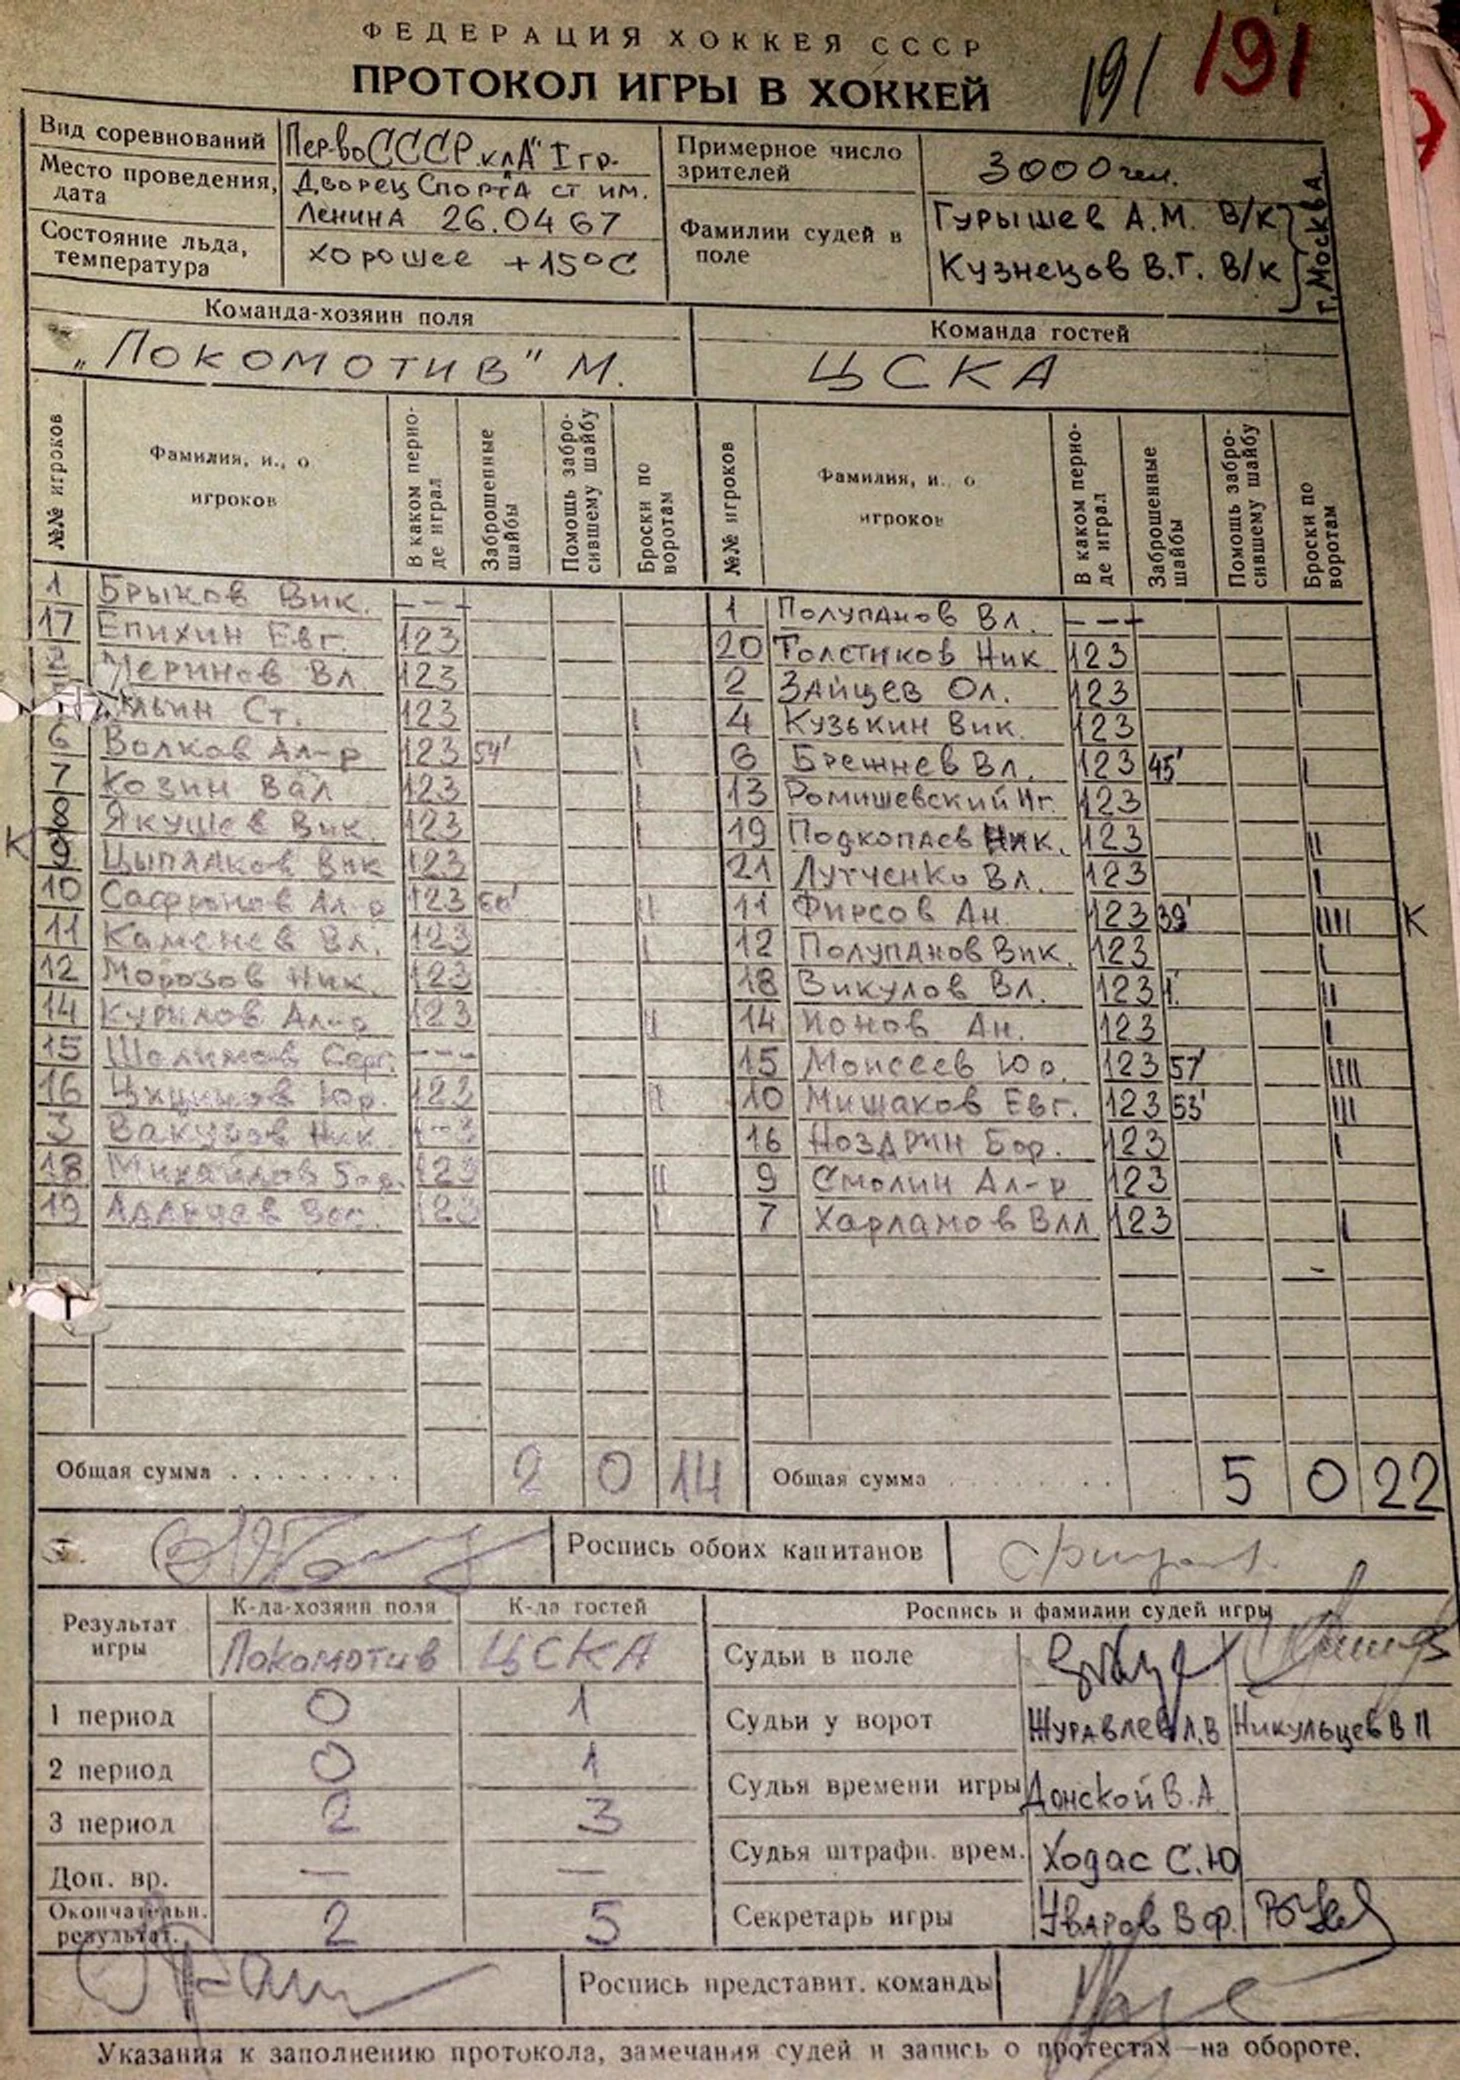 ФЕДЕРАЦИЯ ХОККЕЯ СССР
ПРОТОКОЛ ИГРЫ В ХОККЕЙ
191 191
Вид соревнований Пер-во СССР кл „А" I гр.
Место проведения, дата Дворец Спорта ст им. Ленина 26.04 67
Состояние льда, температура хорошее +15°С
Примерное число зрителей 3000 чел.
Фамилии судей в поле Гурышев А.М. В/к
Кузнецов В.Г. В/к
г. Москва
Команда-хозяин поля
„Локомотив" М.
Команда гостей
ЦСКА
№№ игроков Фамилия, и., о игроков В каком периоде играл Заброшенные шайбы Помощь забросившему шайбу Броски по воротам
№№ игроков Фамилия, и., о игроков В каком периоде играл Заброшенные шайбы Помощь забросившему шайбу Броски по воротам
1 Брыков Вик. - - -
17 Епихин Евг. 123
2 Меринов Вл 123
Ильин Ст. 123 |
6 Волков Ал-р 123 54' |
7 Козин Вал 123 |
8 Якушев Вик. 123 |
К 9 Цыплаков Вик 123
10 Сафронов Ал-р 123 |\|
11 Каменев Вл. 123 |
12 Морозов Ник. 123
14 Курилов Ал-р 123 ||
15 - - -
16 Юр. 123 ||
3 Вакулов Ник
18 Михайлов Бор. 123 ||
19 123 |
1 Полупанов Вл. - - -
20 Толстиков Ник 123
2 Зайцев Ол. 123 |
4 Кузькин Вик. 123
6 Брежнев Вл. 123 45' |
13 Ромишевский Иг. 123
19 Подкопаев Ник. 123 ||
21 Лутченко Вл. 123 |
11 Фирсов Ан 123 39' |||| К
12 Полупанов Вик. 123 |
18 Викулов Вл. 123 1' ||
14 Ионов Ан. 123 |
15 Моисеев Юр. 123 57' ||||
10 Мишаков Евг. 123 53' |||
16 Ноздрин Бор. 123 |
9 Смолин Ал-р 123
7 Харламов Вал 123 |
Общая сумма 2 0 14
Общая сумма 5 0 22
Роспись обоих капитанов
Результат игры К-да-хозяин поля К-да гостей
Локомотив ЦСКА
1 период 0 1
2 период 0 1
3 период 2 3
Доп. вр. — —
Окончательн. результат. 2 5
Роспись и фамилии судей игры
Судьи в поле
Судьи у ворот Журавлев Л.В Никульцев В П
Судья времени игры Донской В.А
Судья штрафн. врем. Ходас С.Ю
Секретарь игры Уваров В Ф.
Роспись представит. команды
Указания к заполнению протокола, замечания судей и запись о протестах — на обороте.